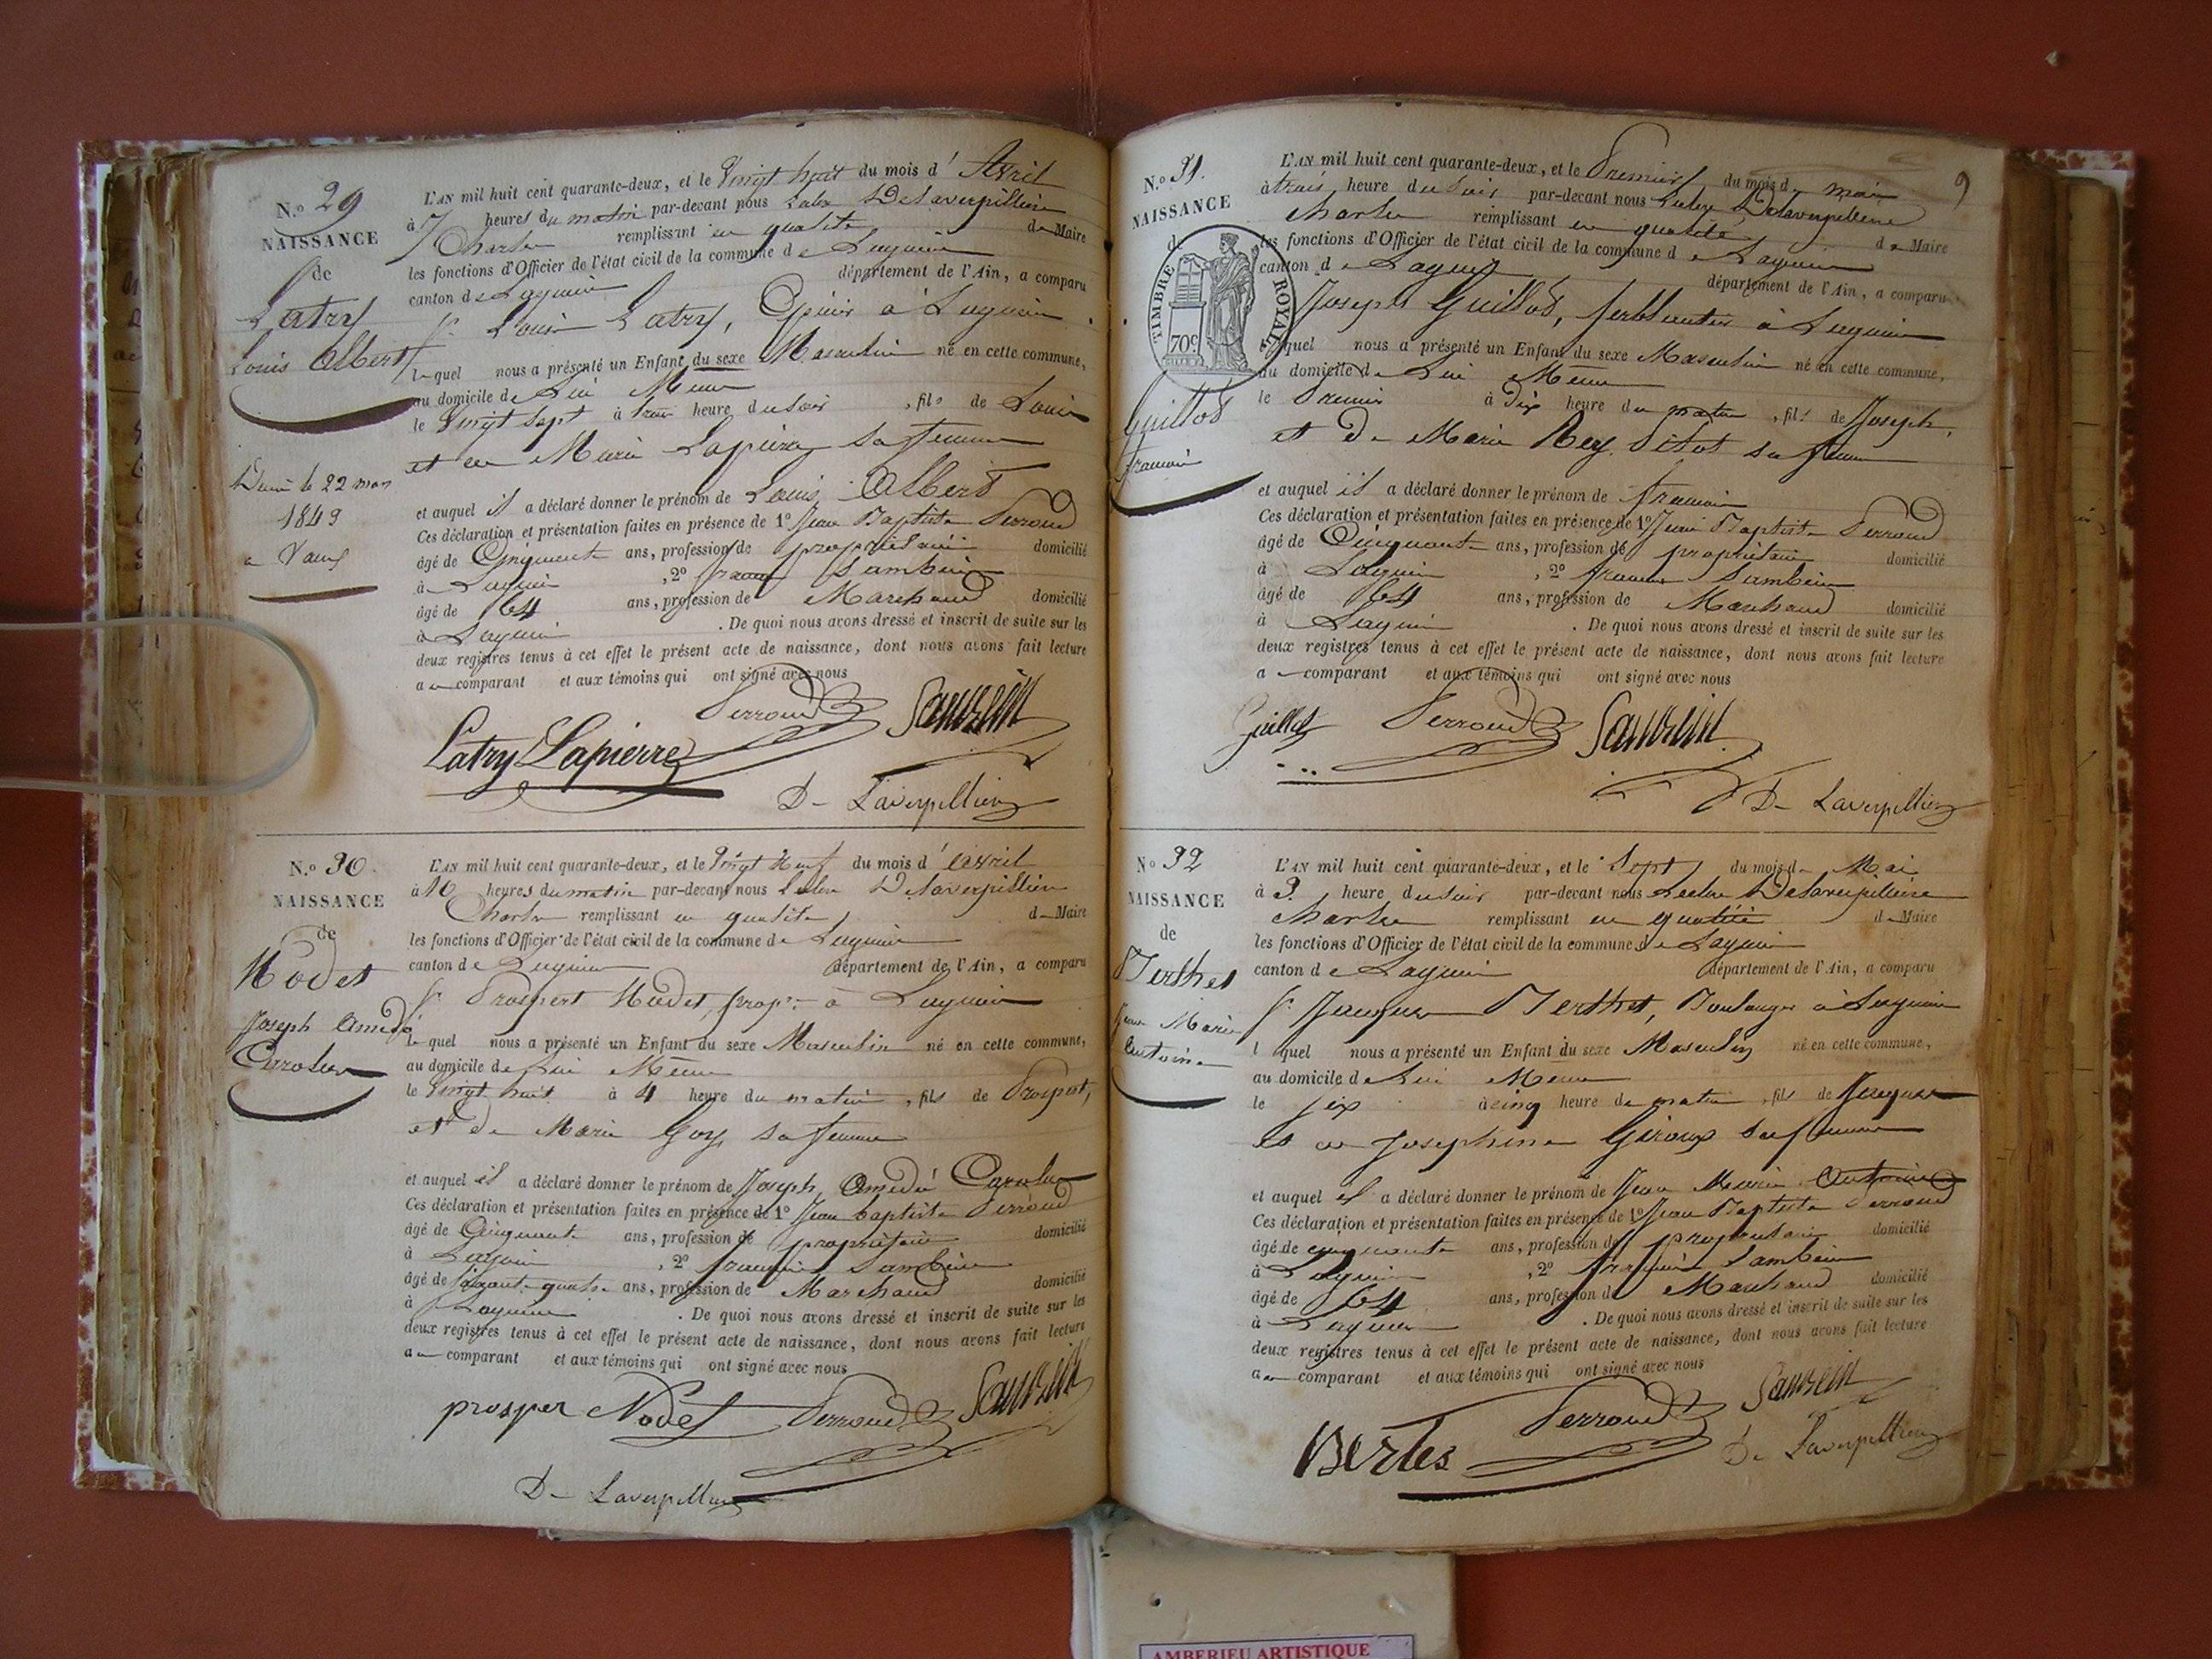 N.° 29
NAISSANCE
de
Latry
Louis Albert
Décédé le 22 mars
1849
a Vaux
L'AN mil huit cent quarante-deux, et le Vingt huit du mois d' Avril
à 7 heures du matin par-devant nous Delaverpilliere
Charles remplissant en qualité de Maire
les fonctions d'Officier de l'état civil de la commune de Lagnieu
canton de Lagnieu département de l'Ain, a comparu
Sr Louis Latry, Epicier à Lagnieu
lequel nous a présenté un Enfant du sexe Masculin né en cette commune,
au domicile de Lui Même
le Vingt sept à trois heure du soir, fils de Louis
et de Marie Lapierre sa femme
et auquel il a déclaré donner le prénom de Louis Albert
Ces déclaration et présentation faites en présence de 1° Jean Baptiste Perroud
âgé de Cinquante ans, profession de propriétaire domicilié
à Lagnieu, 2° Sambein
âgé de 64 ans, profession de Marchand domicilié
à Lagnieu. De quoi nous avons dressé et inscrit de suite sur les
deux registres tenus à cet effet le présent acte de naissance, dont nous avons fait lecture
au comparant et aux témoins qui ont signé avec nous
Perroud
Latry Lapierre
De Laverpilliere
N.° 30
NAISSANCE
de
Nodet
Joseph Amédé
Carolus
L'AN mil huit cent quarante-deux, et le Vingt Neuf du mois d' Avril
à 10 heures du matin par-devant nous Delaverpilliere
Charles remplissant en qualité de Maire
les fonctions d'Officier de l'état civil de la commune de Lagnieu
canton de Lagnieu département de l'Ain, a comparu
Sr Prospert Nodet, propre à Lagnieu
lequel nous a présenté un Enfant du sexe Masculin né en cette commune,
au domicile de Lui Même
le Vingt huit à 4 heure du matin, fils de Prospert,
et de Marie Goy sa femme
et auquel il a déclaré donner le prénom de Joseph Amédé Carolus
Ces déclaration et présentation faites en présence de 1° Jean baptiste Perroud
âgé de Cinquante ans, profession de propriétaire domicilié
à Lagnieu, 2° françois Sambein
âgé de soixante quatre ans, profession de Marchand domicilié
à Lagnieu. De quoi nous avons dressé et inscrit de suite sur les
deux registres tenus à cet effet le présent acte de naissance, dont nous avons fait lecture
au comparant et aux témoins qui ont signé avec nous
prosper Nodet Perroud
De Laverpilliere
9
N.° 31.
NAISSANCE
de
TIMBRE ROYAL
70c
Guillot
françois
L'AN mil huit cent quarante-deux, et le Premier du mois de mai
à trois heure du soir par-devant nous Delaverpilliere
Charles remplissant en qualité de Maire
les fonctions d'Officier de l'état civil de la commune de Lagnieu
canton de Lagnieu département de l'Ain, a comparu
Joseph Guillot, ferblantier à Lagnieu
lequel nous a présenté un Enfant du sexe Masculin né en cette commune,
au domicile de Lui Même
le Premier à Dix heure du matin, fils de Joseph,
et de Marie Rey Pitot sa femme
et auquel il a déclaré donner le prénom de françois
Ces déclaration et présentation faites en présence de 1° Jean Baptiste Perroud
âgé de Cinquante ans, profession de propriétaire domicilié
à Lagnieu, 2° françois Sambein
âgé de 64 ans, profession de Marchand domicilié
à Lagnieu. De quoi nous avons dressé et inscrit de suite sur les
deux registres tenus à cet effet le présent acte de naissance, dont nous avons fait lecture
au comparant et aux témoins qui ont signé avec nous
Guillot Perroud
De Laverpilliere
N° 32
NAISSANCE
de
Berthet
Jean Marie
Antoine
L'AN mil huit cent quarante-deux, et le Sept du mois de Mai
à 3 heure du soir par-devant nous Delaverpilliere
Charles remplissant en qualité de Maire
les fonctions d'Officier de l'état civil de la commune de Lagnieu
canton de Lagnieu département de l'Ain, a comparu
Sr Jacques Berthet, Boulanger à Lagnieu
lequel nous a présenté un Enfant du sexe Masculin né en cette commune,
au domicile de Lui Même
le six à cinq heure du matin, fils de Jacques
et de Josephine Giroux sa femme
et auquel il a déclaré donner le prénom de Jean Marie Antoine
Ces déclaration et présentation faites en présence de 1° Jean Baptiste Perroud
âgé de cinquante ans, profession de propriétaire domicilié
à Lagnieu, 2° françois Sambein
âgé de 64 ans, profession de Marchand domicilié
à Lagnieu. De quoi nous avons dressé et inscrit de suite sur les
deux registres tenus à cet effet le présent acte de naissance, dont nous avons fait lecture
au comparant et aux témoins qui ont signé avec nous
Bertes Perroud
De Laverpilliere
AMBERIEU ARTISTIQUE